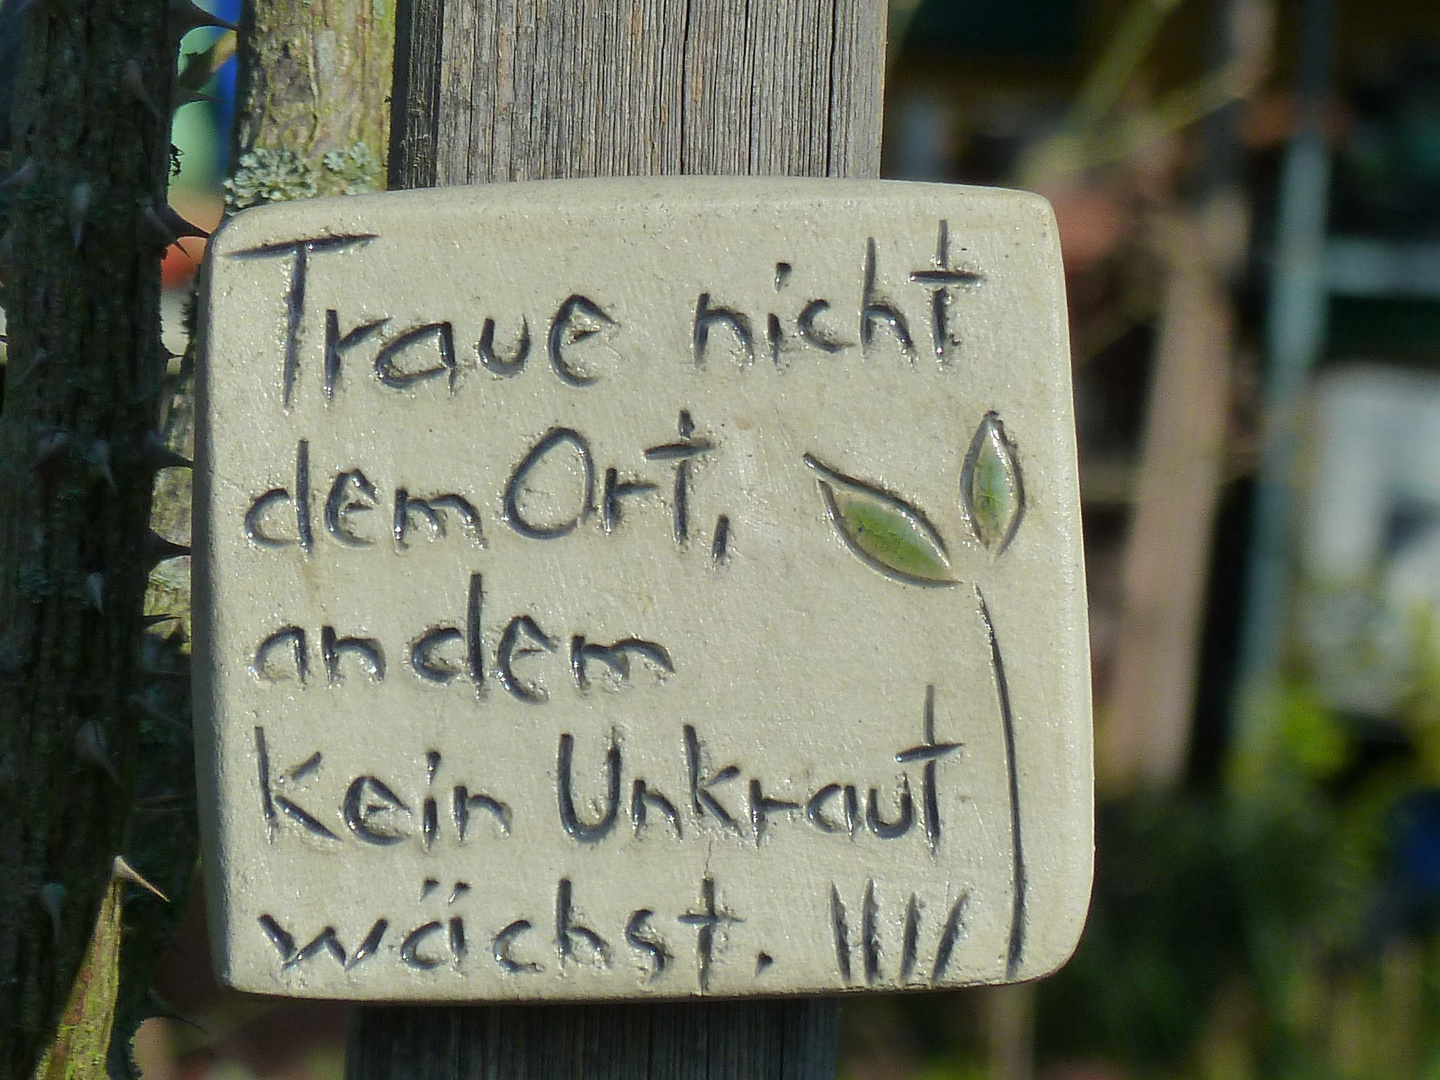 Traue nicht
dem Ort,
an dem
kein Unkraut
wächst.